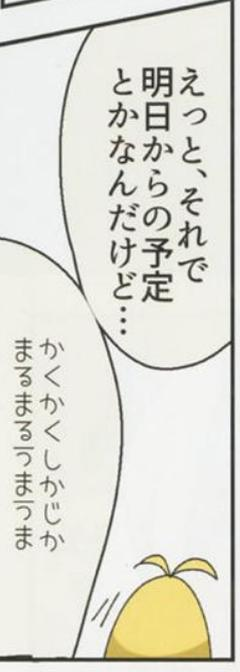 えっと、それで
明日からの予定
とかなんだけど…
かくかくしかじか
まるまるうまうま